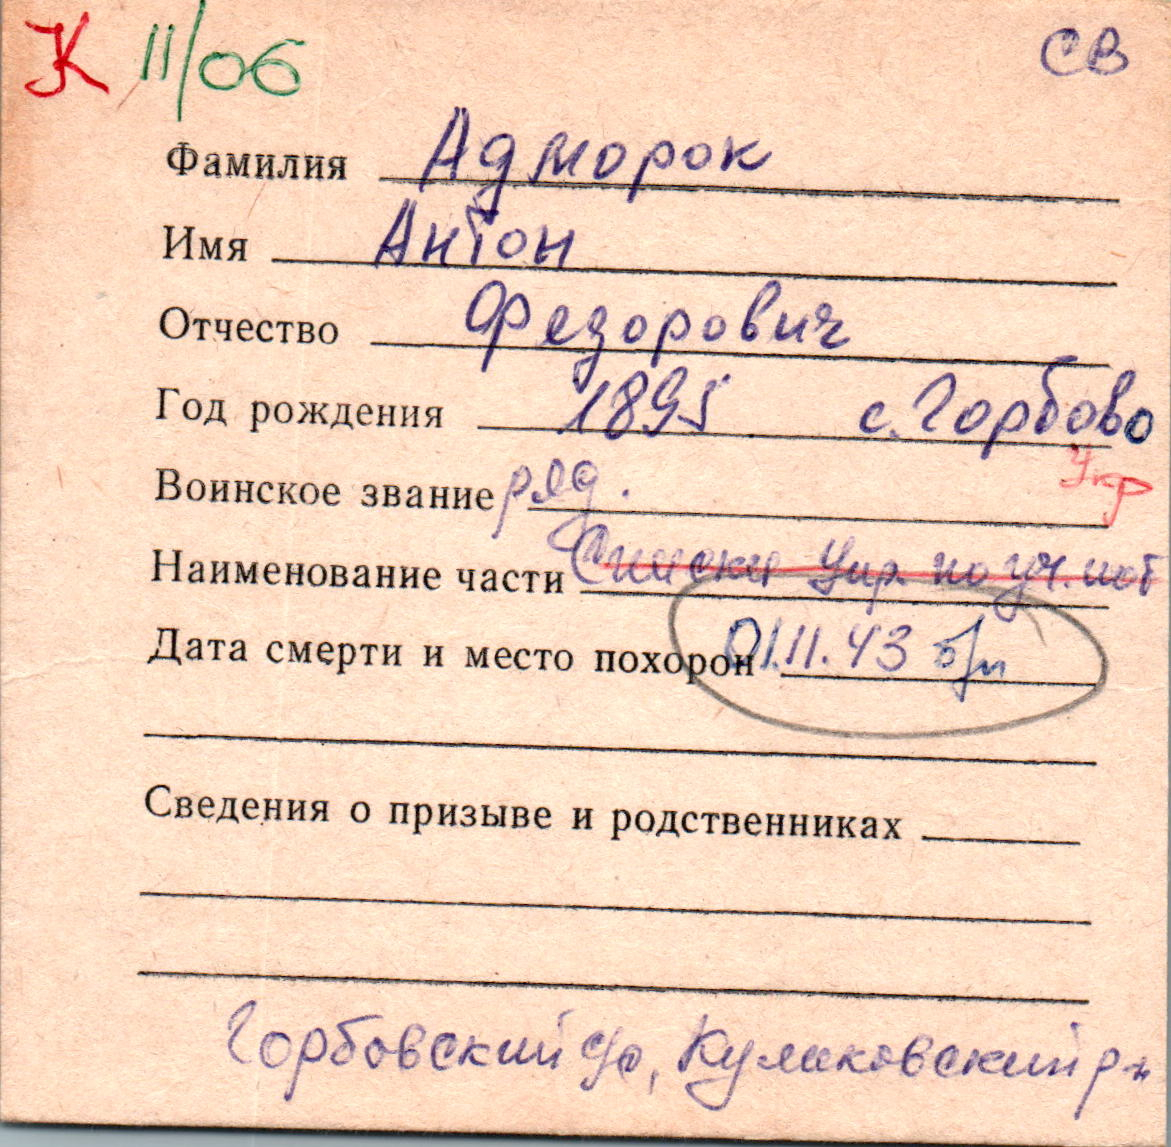 К 11/06 СВ
Фамилия Адморок
Имя Антон
Отчество Федорович
Год рождения 1895 с. Горбово
Укр
Воинское звание ряд.
Наименование части Списки Упр. по уч. пот
Дата смерти и место похорон 01.11.43 б/п
Сведения о призыве и родственниках
Горбовский с/с, Куликовский р-н